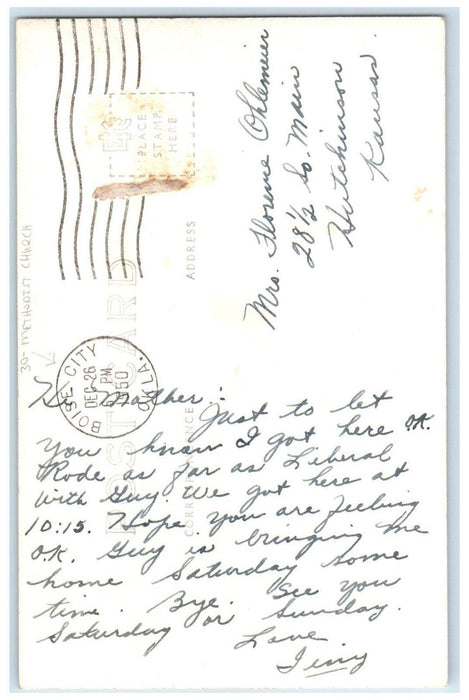 PLACE
STAMP
HERE
POST CARD
ADDRESS
CORRESPONDENCE
BOISE CITY
DEC 26
PM
1950
OKLA.
30- METHODIST CHURCH
Mrs. Florence Ohlemeier
28½ So. Main
Hutchinson
Kansas.
Hi Mother:
Just to let
you know I got here OK.
Rode as far as Liberal
with Guy We got here at
10:15. Hope you are feeling
O.K. Guy is bringing me
home Saturday some
time. Bye. See you
Saturday or Sunday.
Love